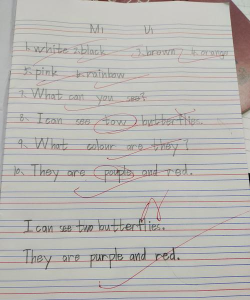 1. white 2. black 3. brown 4. orange
5. pink 6. rainbow
7. What can you see?
8. I can see tow butterflies.
9. What colour are they?
10. They are pouple and red.
I can see two butterflies.
They are purple and red.